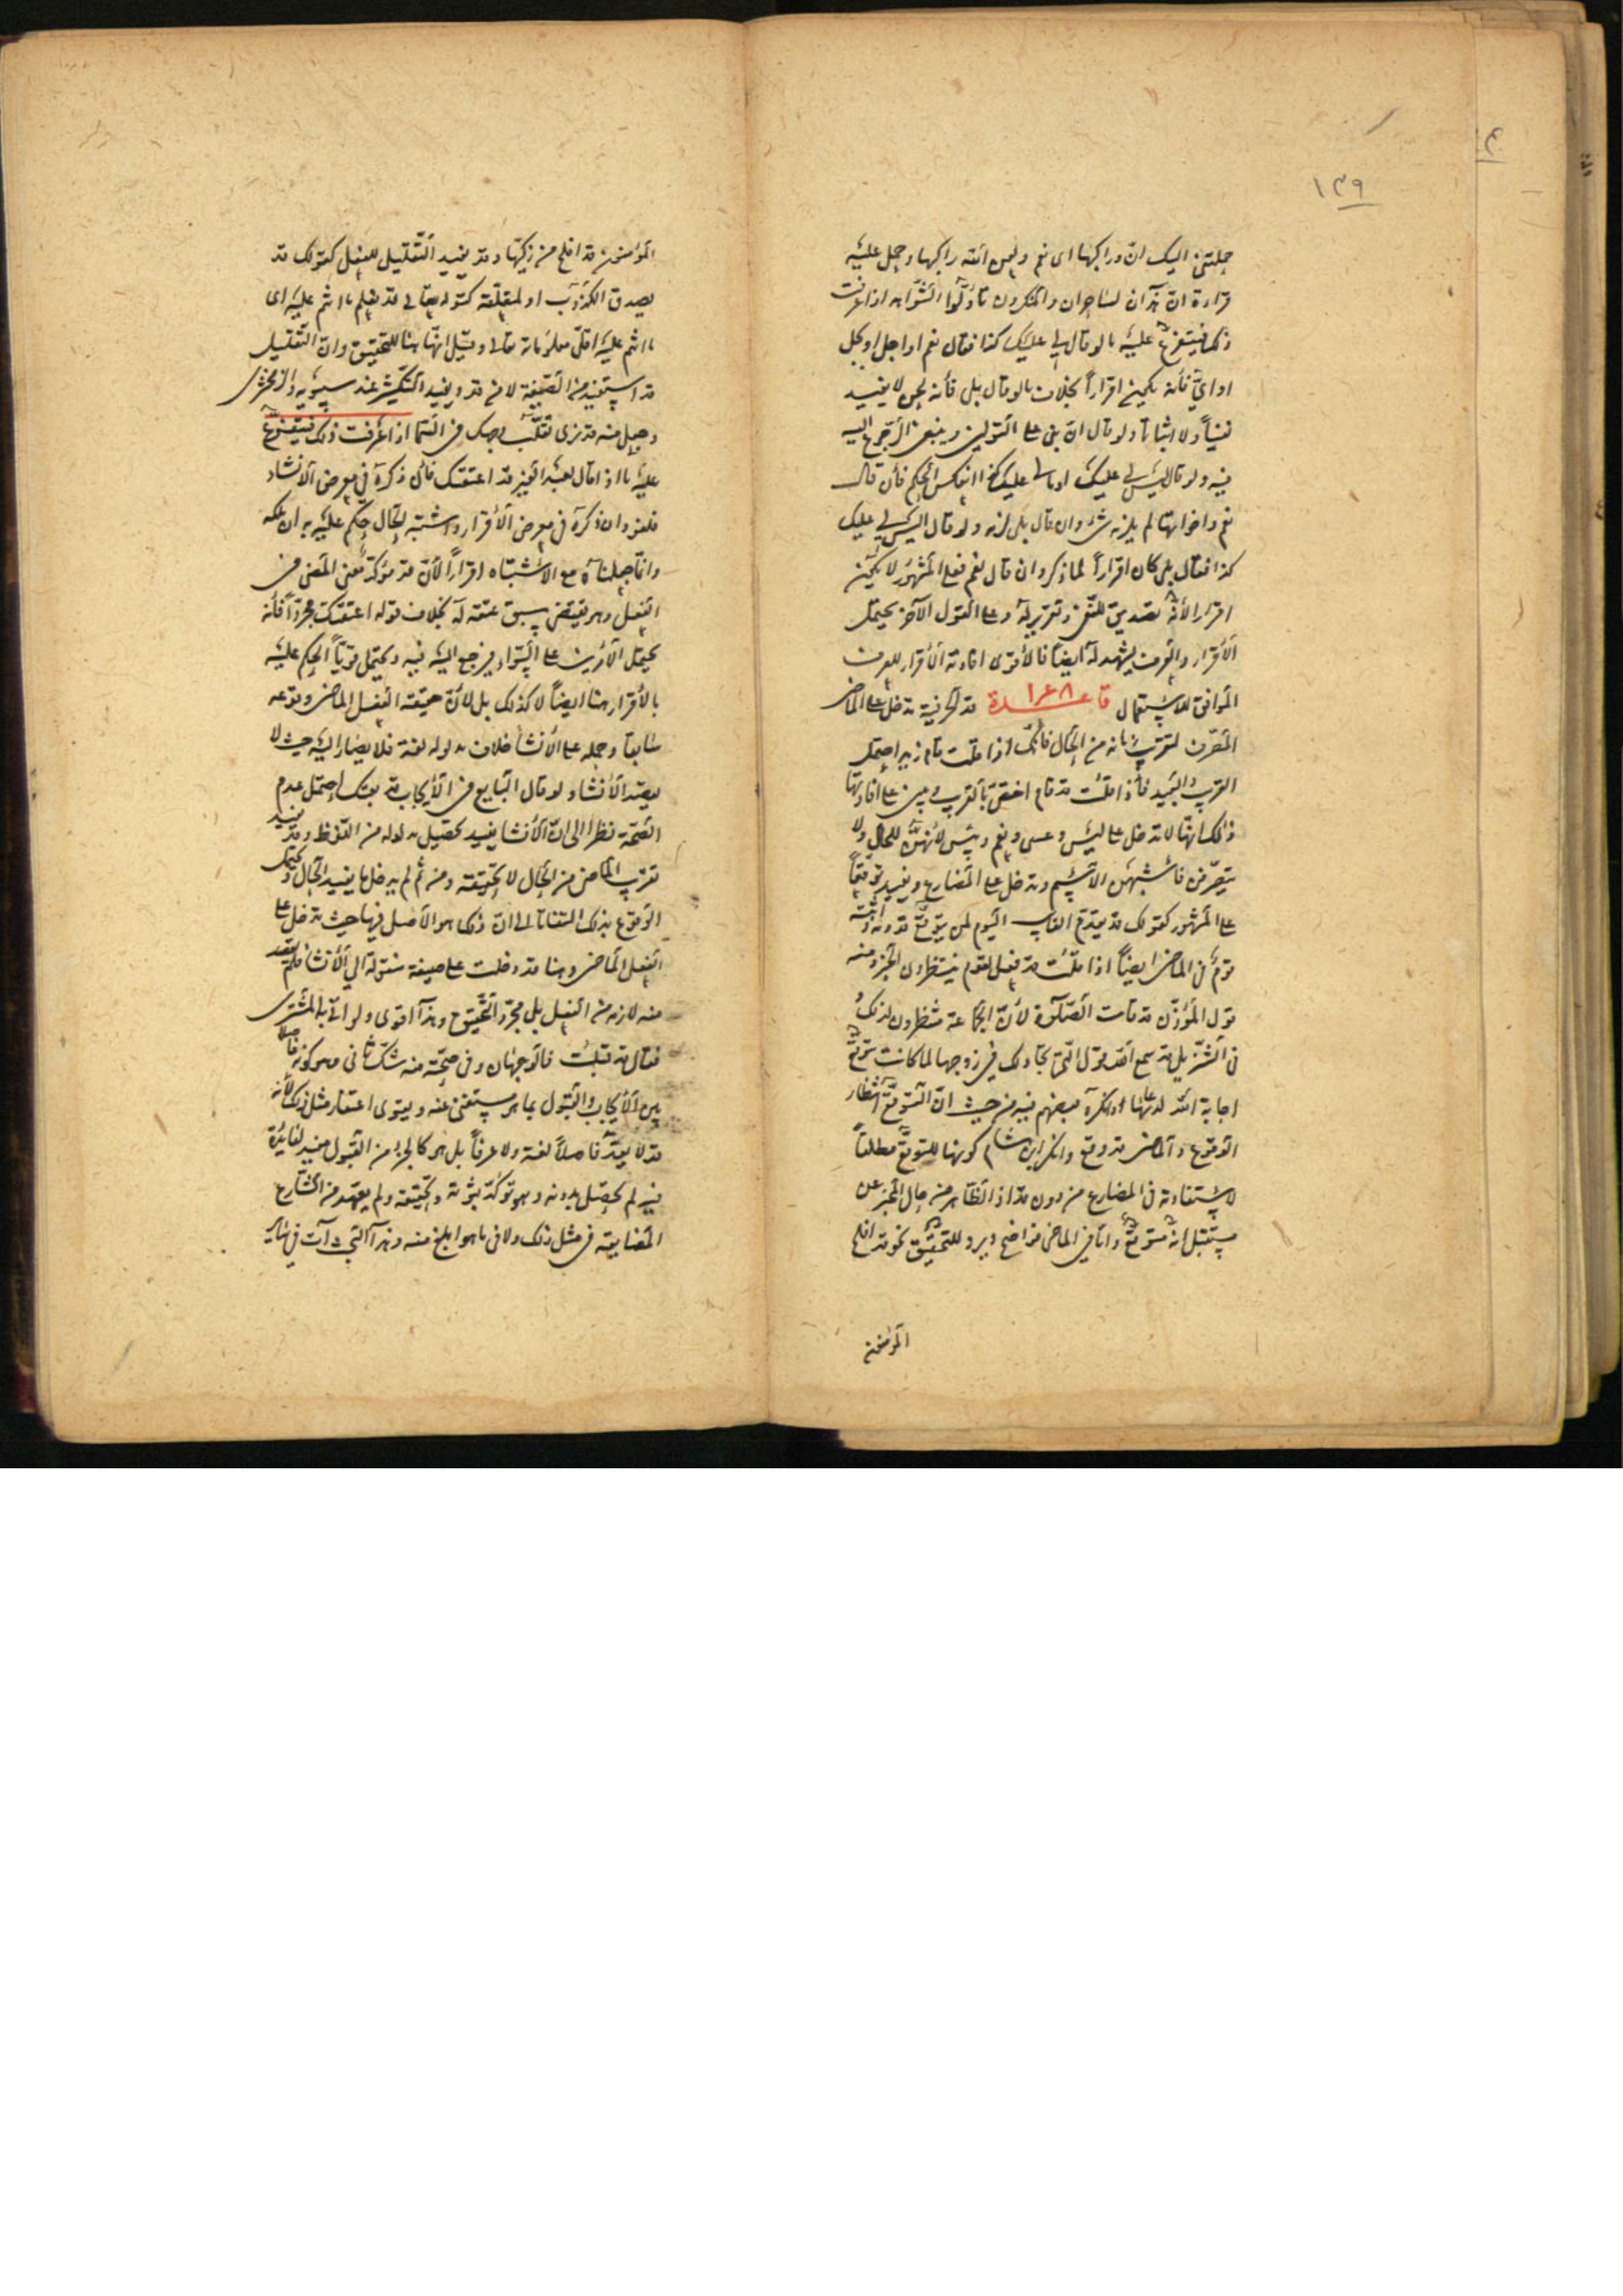 ١٣٩
حملتني اليك ان وراكبها اى نعم ولعن الله راكبها وحمل عليه
قراءة ان هذان لساحران والمنكرون تاولوا الشواهد اذا عرفت
ذلك فيتفرع عليه ما لو قال لي عليك كذا فقال نعم او اجل او بجل
او اي فانه يكون اقراراً بخلاف ما لو قال بلى فانه لا يفيد
نفياً ولا اثباتاً ولو قال ان بني على القولين وينبغي الرجوع اليه
فيه ولو قال ليس لي عليك او ما لي عليك كذا انعكس الحكم فان قال
نعم واخواتها لم يلزمه شئ وان قال بلى لزمه ولو قال اليس لي عليك
كذا فقال بلى كان اقراراً لما ذكر وان قال نعم فعلى المشهور لا يكون
اقرارا لأنه تصديق للنفي وتقرير له وعلى القول الآخر يحتمل
الأقرار والعرف يشهد له ايضاً فالأقوى افادته الأقرار للعرف
الموافق للاستعمال قاعدة ١٤٨ قد الحرفية تدخل على الماضي
المتصرف لتقربه من الحال فانك اذا قلت قام زيد احتمل
القرب والبعيد فاذا قلت قد قام اختص بالقرب ويبنى على افادتها
ذلك انها لا تدخل على ليس وعسى ونعم وبئس لأنهن للحال ولا
يتصرفن فاشبهن الاسم وتدخل على المضارع ويفيد توقعاً
على المشهور كقولك قد يقدم الغايب اليوم لمن يتوقع قدومه واثبته
قوم في الماضي ايضاً اذا قلت قد فعل لقوم ينتظرون الخبر ومنه
قول المؤذن قد قامت الصلوة لأن الجماعة منتظرون لذلك
في التنزيل قد سمع الله قول التي تجادلك في زوجها لما كانت تتوقع
اجابة الله لدعائها وانكره بعضهم فيه من حيث ان التوقع انتظار
الوقوع والماضي قد وقع وانكر ابن هشام كونها للتوقع مطلقاً
لاستفادته في المضارع من دون قد اذ الظاهر من حال المخبر عن
مستقبل انه متوقع واما في الماضي فواضح ويرد للتحقيق نحو قد افلح
المؤمنون
المؤمنون قد افلح من زكيها وقد يفيد التقليل للفعل كقولك قد
يصدق الكذوب او لمتعلقه كقوله تعالى قد يعلم ما انتم عليه اى
ما انتم عليه اقل معلوماته تعالى وقيل انها هنا للتحقيق وان التقليل
قد استفيد من الصيغة لا من قد ويفيد التكثير عند سيبويه والزمخشرى
وجعل منه قد نرى تقلب وجهك في السما اذا عرفت ذلك فيتفرع
عليه ما اذا قال لعبد الغير قد اعتقتك فان ذكره في معرض الانشاء
فلغو وان ذكره في معرض الأقرار واشتبه الحال حكم عليه به ان ملكه
وانما جعلناه مع الاشتباه اقراراً لأن قد مؤكدة معنى المضي في
الفعل وهو يقتضي سبق عتقه له بخلاف قوله اعتقتك مجرداً فانه
يحتمل الأمرين على السواء فيرجع اليه فيه ويحتمل قوياً الحكم عليه
بالأقرار هنا ايضاً لا كذلك بل لأن حقيقة الفعل الماضي وقوعه
سابقاً وحمله على الأنشا خلاف مدلوله لغة فلا يصار اليه حيث لا
يقصد الأنشاء ولو قال البايع في الأيجاب قد بعتك احتمل عدم
الصحة نظرا الى ان الأنشا يفيد تحصيل مدلوله من اللفظ وقد يفيد
تقرب الماضي من الحال لا بحقيقته ومن ثم لم يدخل ما يفيد الحال ويحتمل
الوقوع بذلك التفاتا الى ان ذلك هو الأصل فيها حيث تدخل على
الفعل الماضي وهنا قد دخلت على صيغة منقولة الي الأنشا فلم يقصد
منه لازمه من الفعل بل مجرد التحقيق وهذا اقوى ولو اتى به المشترى
فقال قد قبلت فالوجهان وفي صحته منه شك ثاني وهو كونه فاصلا
بين الأيجاب والقبول بما هو مستغنى عنه ويقوى اغتفار مثل ذلك لأنه
قد لا يعد فاصلاً لغة ولا عرفاً بل هو كالجزء من القبول مفيد لفائدة
فيه لم يحصل بدونه وهو توكد ثبوته وتحقيقه ولم يعهد من الشارع
المضايقة في مثل ذلك ولا في ما هو ابلغ منه وهذا البحث آت في